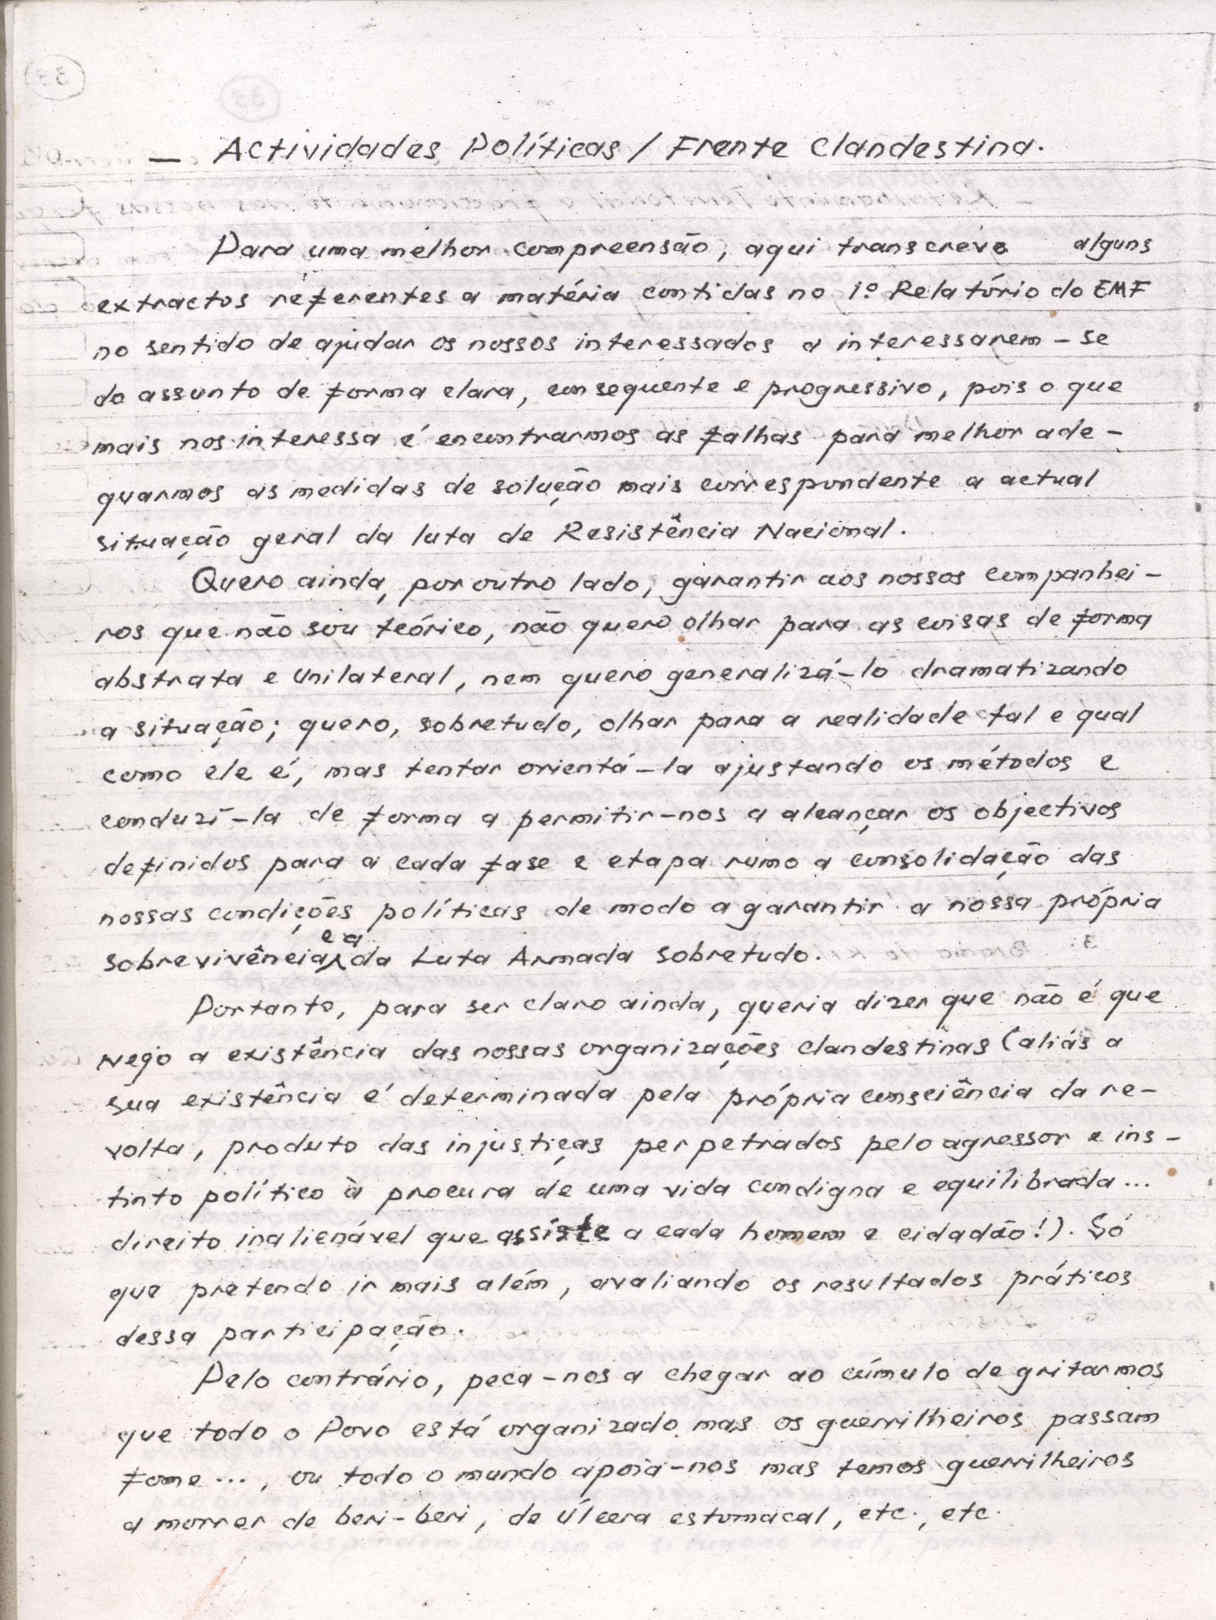 — Actividades Políticas / Frente Clandestina.
Para uma melhor compreensão, aqui transcrevo alguns
extractos referentes a matéria contidas no 1º Relatório do EMF
no sentido de ajudar os nossos interessados a interessarem-se
do assunto de forma clara, consequente e progressivo, pois o que
mais nos interessa é encontrarmos as falhas para melhor ade-
quarmos as medidas de solução mais correspondente a actual
situação geral da luta de Resistência Nacional.
Quero ainda, por outro lado, garantir aos nossos companhei-
ros que não sou teórico, não quero olhar para as coisas de forma
abstrata e unilateral, nem quero generalizá-lo dramatizando
a situação; quero, sobretudo, olhar para a realidade tal e qual
como ele é, mas tentar orientá-la ajustando os métodos e
conduzí-la de forma a permitir-nos a alcançar os objectivos
definidos para a cada fase e etapa rumo a consolidação das
nossas condições políticas de modo a garantir a nossa própria
sobrevivência e a da Luta Armada sobretudo.
Portanto, para ser claro ainda, queria dizer que não é que
nego a existência das nossas organizações clandestinas (aliás a
sua existência é determinada pela própria consciência da re-
volta, produto das injustiças perpetrados pelo agressor e ins-
tinto político à procura de uma vida condigna e equilibrada...
direito inalienável que assiste a cada homem e cidadão!). Só
que pretendo ir mais além, avaliando os resultados práticos
dessa participação.
Pelo contrário, peca-nos a chegar ao cúmulo de gritarmos
que todo o Povo está organizado mas os guerrilheiros passam
fome..., ou todo o mundo apoia-nos mas temos guerrilheiros
a morrer de beri-beri, de úlcera estomacal, etc., etc.